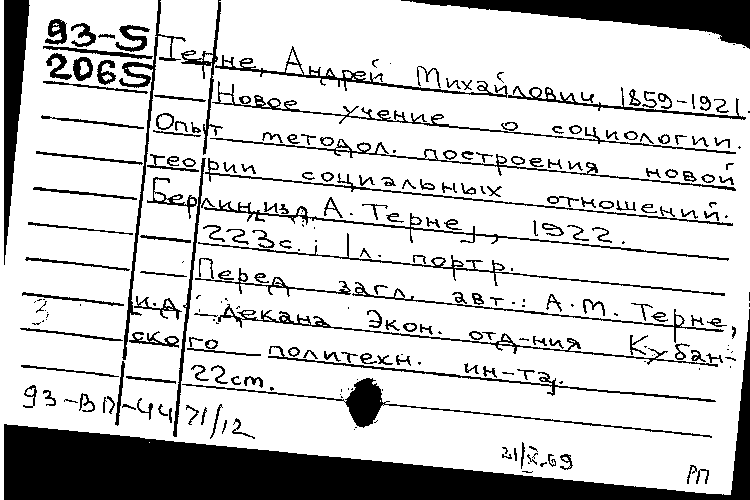 93-5
2065
Терне, Андрей Михайлович, 1859-1921.
Новое учение о социологии.
Опыт методол. построения новой
теории социальных отношений.
Берлин, изд. А. Терне, 1922.
223с.; 1л. портр.
Перед загл. авт.: А.М. Терне,
и.д. декана Экон. отд-ния Кубан-
ского политехн. ин-та.
22см.
3
93-ВП-44 71/12
21/X-69
РП